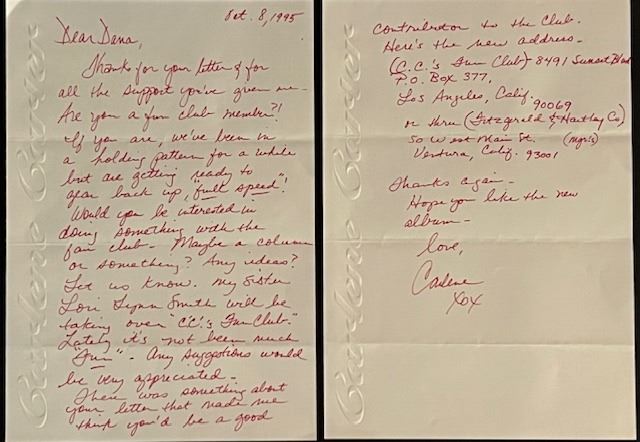 Oct. 8, 1995
Dear Dana,
Thanks for your letter & for
all the support you've given me—
Are you a fun club member?!
If you are, we've been in
a holding pattern for a while
but are getting ready to
gear back up, "full speed"!
Would you be interested in
doing something with the
fan club— Maybe a column
or something? Any ideas?
Let us know. My sister
Lori Lynn Smith will be
taking over "CC's Fun Club."
Lately it's not been much
"Fun"— Any suggestions would
be very appreciated—
There was something about
your letter that made me
think you'd be a good
Carlene
contributor to the Club.
Here's the new address—
(C.C.'s Fun Club) 8491 Sunset Blvd
P.O. Box 377,
Los Angeles, Calif.
90069
or thru (Fitzgerald & Hartley Co)
50 West Main St. (mgr's)
Ventura, Calif. 93001
Thanks again—
Hope you like the new
album—
love,
Carlene
xox
Carlene